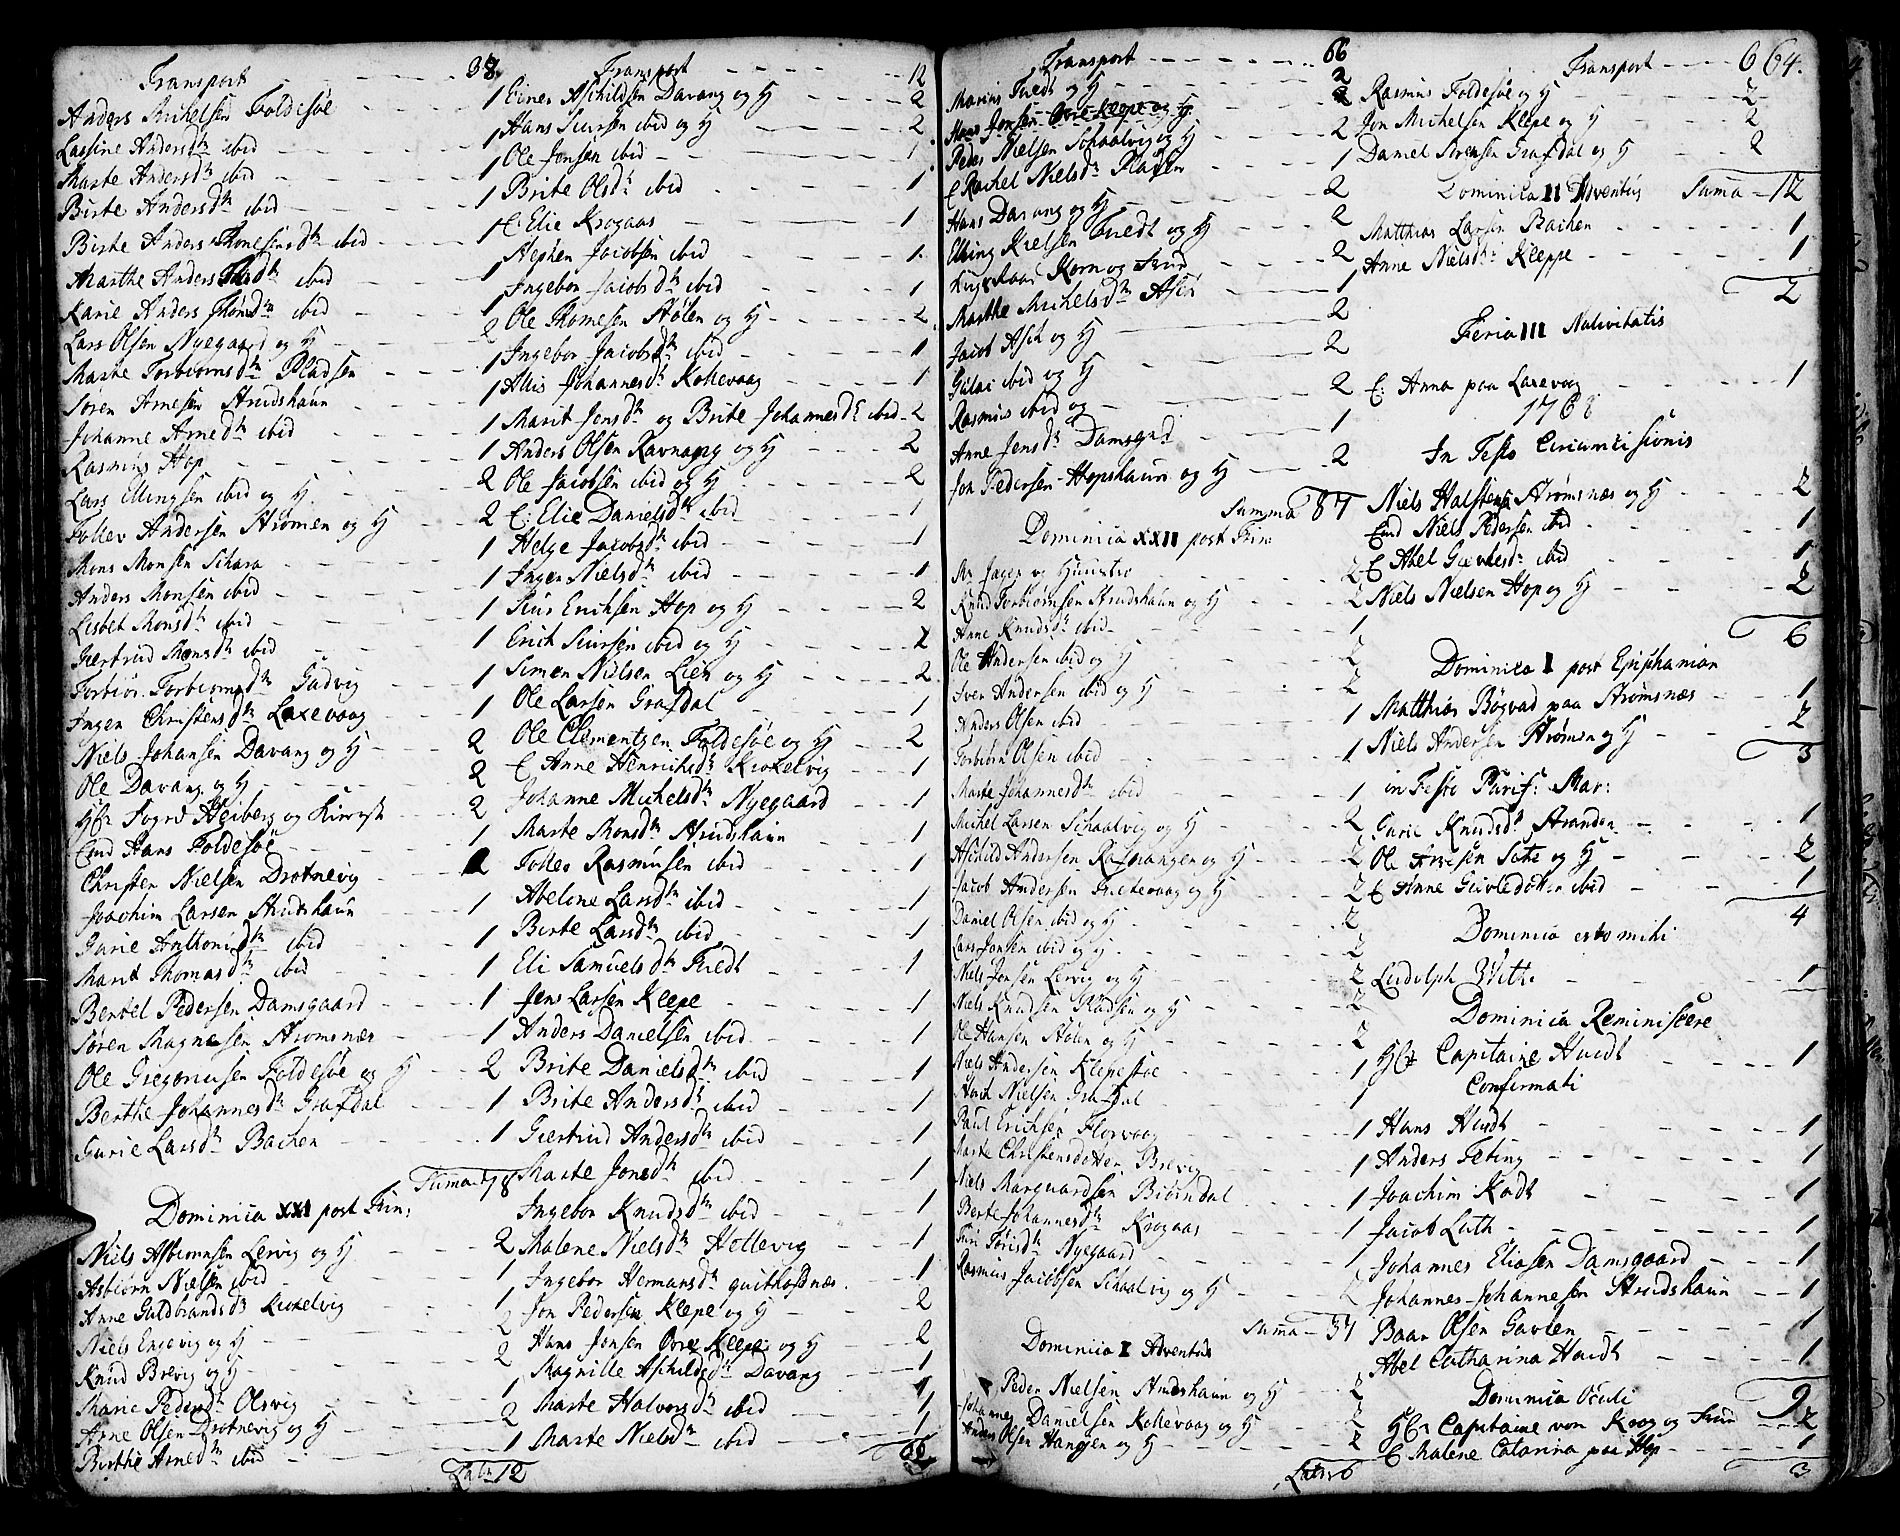 Transport - - - 38
Anders Michelsen Foldesøe - - 1
Lassine Andersdr ibid - - 1
Marte Andersdr ibid - - 1
Birte Andersdr ibid - - 1
Birte Anders ibid - - 1
Marthe Anders ibid - - 1
Karie Anders ibid - - 1
Lars Olsen Nyegaard og H - - 2
Marte Torbiørnsdr Pladsen - - 1
Søren Arnesen Strudshaun - - 1
Johanne Arnedr ibid - - 1
Rasmus Hop - - 1
Lars Ellingsen ibid og H - - 2
Tollev Andersen Strømen og H - - 2
Mons Monsen Schara - - 1
Anders Monsen ibid - - 1
Lisbet Monsdr ibid - - 1
Giertrud Monsdr ibid - - 1
Torbiør Torbiørnsdr Gadvig - - 1
Ingen Christensdr Laxevaag - - 1
Niels Johansen Davang og H - - 2
Ole Davang og H - - 2
Hr Fogd Heiberg og - - 2
Emd Hans Foldesøe - - 1
Christen Nielsen Drotnevig - - 1
Joachim Larsen Strudshaun - - 1
Gurie Anthonidr ibid - - 1
Marit Thomasdr ibid - - 1
Bertel Pedersen Damsgaard - - 1
Søren Magnesen Strømsnæs - - 1
Ole Gregoriusen Foldesøe og H - - 2
Berthe Johannesdr Grafdal - - 1
Gurie Larsdr Bachen - - 1
Suma 78
Dominica XXI post Trin:
Niels Asbiørnsen Lervig og H - - 2
Asbiørn Nielsen ibid - - 1
Anne Guldbrandsdr Kirkelvig - - 1
Niels Engevig og H - - 2
Knud Brevig og H - - 2
Marie Pedersdr Olsvig - - 1
Arne Olsen Drotnevig og H - - 2
Birthe Arnedr ibid - - 1
Latr 12
Transport - - - 12
Einer Aschildsen Davang og H - - 2
Hans Siursen ibid og H - - 2
Ole Jonsen ibid - - 1
Brite Olsdr ibid - - 1
E: Elie Krogaas - - 1
Stephen Jacobsen ibid - - 1
Ingebor Jacobsdr ibid - - 1
Ole Thomesen Stølen og H - - 2
Ingebor Jacobsdr ibid - - 1
Allis Johannesdr Kollevaag - - 1
Marit Jensdr og Brite Johannesdr ibid - 2
Anders Olsen Ravnang og H - - 2
Ole Jacobsen ibid og H - - 2
E: Elie Danielsdr ibid - - 1
Helge Jacobsdr ibid - - 1
Ingen Nielsdr ibid - - 1
Siur Erichsen Hop og H - - 2
Erich Siursen ibid og H - - 2
Simen Nielsen Lien og H - - 2
Ole Larsen Grafdal - - 1
Ole Clementzen Foldesøe og H - - 2
E Anne Henrichsdr Kirkelvig - - 1
Johanne Michelsdr Nyegaard - - 1
Marte Monsdr Strudshaun - - 1
Tolles Rasmusen ibid - - 1
Abelone Larsdr ibid - - 1
Berte Larsdr ibid - - 1
Eli Samuelsdr Tvedt - - 1
Jens Larsen Klepe - - 1
Anders Danielsen ibid - - 1
Brite Danielsdr ibid - - 1
Brite Andersdr ibid - - 1
Giertrud Andersdr ibid - - 1
Marte Jonsdr ibid - - 1
Ingebor Knudsdr ibid - - 1
Malene Nielsdr Hollevig - - 1
Ingebor Hermansdr - - 1
Jon Pedersen Klepe og H - - 2
Hans Jonsen Øvre Klepe og H - - 2
Magnille Aschildsdr Davang - - 1
Marte Halvorsdr ibid - - 1
Marte Nielsdr ibid - - 1
66
Transport - - - 66
Marius Tvedt og H - - 2
Hans Jonsen Øvre Klepe og H - - 2
Peder Nielsen Schaalvig og H - - 2
E Rachel Nielsdr Pladsen - - 1
Hans Davang og H - - 2
Elling Nielsen Tvedt og H - - 2
Korn og Frue - - 2
Marthe Michelsdr Ask - - 1
Jacob Ask og H - - 2
Gulac ibid og H - - 2
Rasmus ibid og - - 2
Anne Jensdr Damsgrd - - 1
Jon Pedersen Hopshaun og H - - 2
Summa 87
Dominica XXII post Trin:
Mr Jæger og Huustro - - 2
Knud Torbiørnsen Strudshaun og H - - 2
Anne Knudsdr ibid - - 1
Ole Andersen ibid og H - - 2
Sven Andersen ibid og H - - 2
Anders Olsen ibid - - 1
Torbiørn Olsen ibid - - 1
Marte Johannesdr ibid - - 1
Michel Larsen Schaalvig og H - - 2
Aschild Andersen og H - - 2
Jacob Andersen og H - - 2
Daniel Olsen ibid og H - - 2
Lars Jonsen ibid og H - - 2
Niels Jonsen Lervig og H - - 2
Niels Knudsen Pladsen og H - - 2
Ole Hansen Stølen og H - - 2
Niels Andersen Klepestøe - - 1
Nielsen Grafdal - - 1
Paul Erichsen Florvaag - - 1
Marte Christensdotter Brevig - - 1
Niels Marquardsen Biørndal - - 1
Berte Johannesdr Krogaas - - 1
Nyegaard - - 1
Rasmus Jacobsen Schaalvig og H - - 2
Suma - 37
Dominica I Adventus
Peder Nielsen Strudshaun og H - - 2
Johannes Danielsen Kollevaag og H - - 2
Anders Olsen Hangen og H - - 2
Latr: 6
Transport - - - 6 64.
Rasmus Foldesøe og H - - 2
Jon Michelsen Klepe og H - - 2
Daniel Sørensen Grafdal og H - - 2
Dominica II Adventus Suma - 12
Matthias Larsen Bachen - - 1
Anne Nielsdr: Kleppe - - 1
2
Feria III Nativitatis
E: Anna paa Laxevog - - 1
1768
In Festo Circumcisionis
Niels Halstensen Strømsnæs og H - - 2
Emd Niels Pedersen ibid - - 1
E Abel ibid - - 1
Niels Nielsen Hop og H - - 2
6
Dominica I post Epiphanian
Matthias Bøgvad paa Strømsnæs - - 1
Niels Andersen Strømen og H - - 2
3
in Festo Purif: Mar:
Gurie Knudsdr Stranden - - 1
Ole Arnesen Sæte og H - - 2
E Anne ibid - - 1
4
Dominica esto mihi
Ludolph Witte - - 1
Dominica Reminiscere
Hr Capitaine Huidt - - 1
Confirmati
Hans Huidt - - 1
Anders Feting - - 1
Joachim Kodt - - 1
Jacob Luth - - 1
Johannes Eliasen Damsgaard - - 1
Johannes Johannesen Strudshaun - - 1
Baar Olsen Gavlen - - 1
Abel Catharina Huidt - - 1
9
Dominica Oculi
Hr Capitaine von Krog og Frue - - 2
E Malene Catarina paa Hop - - 1
3